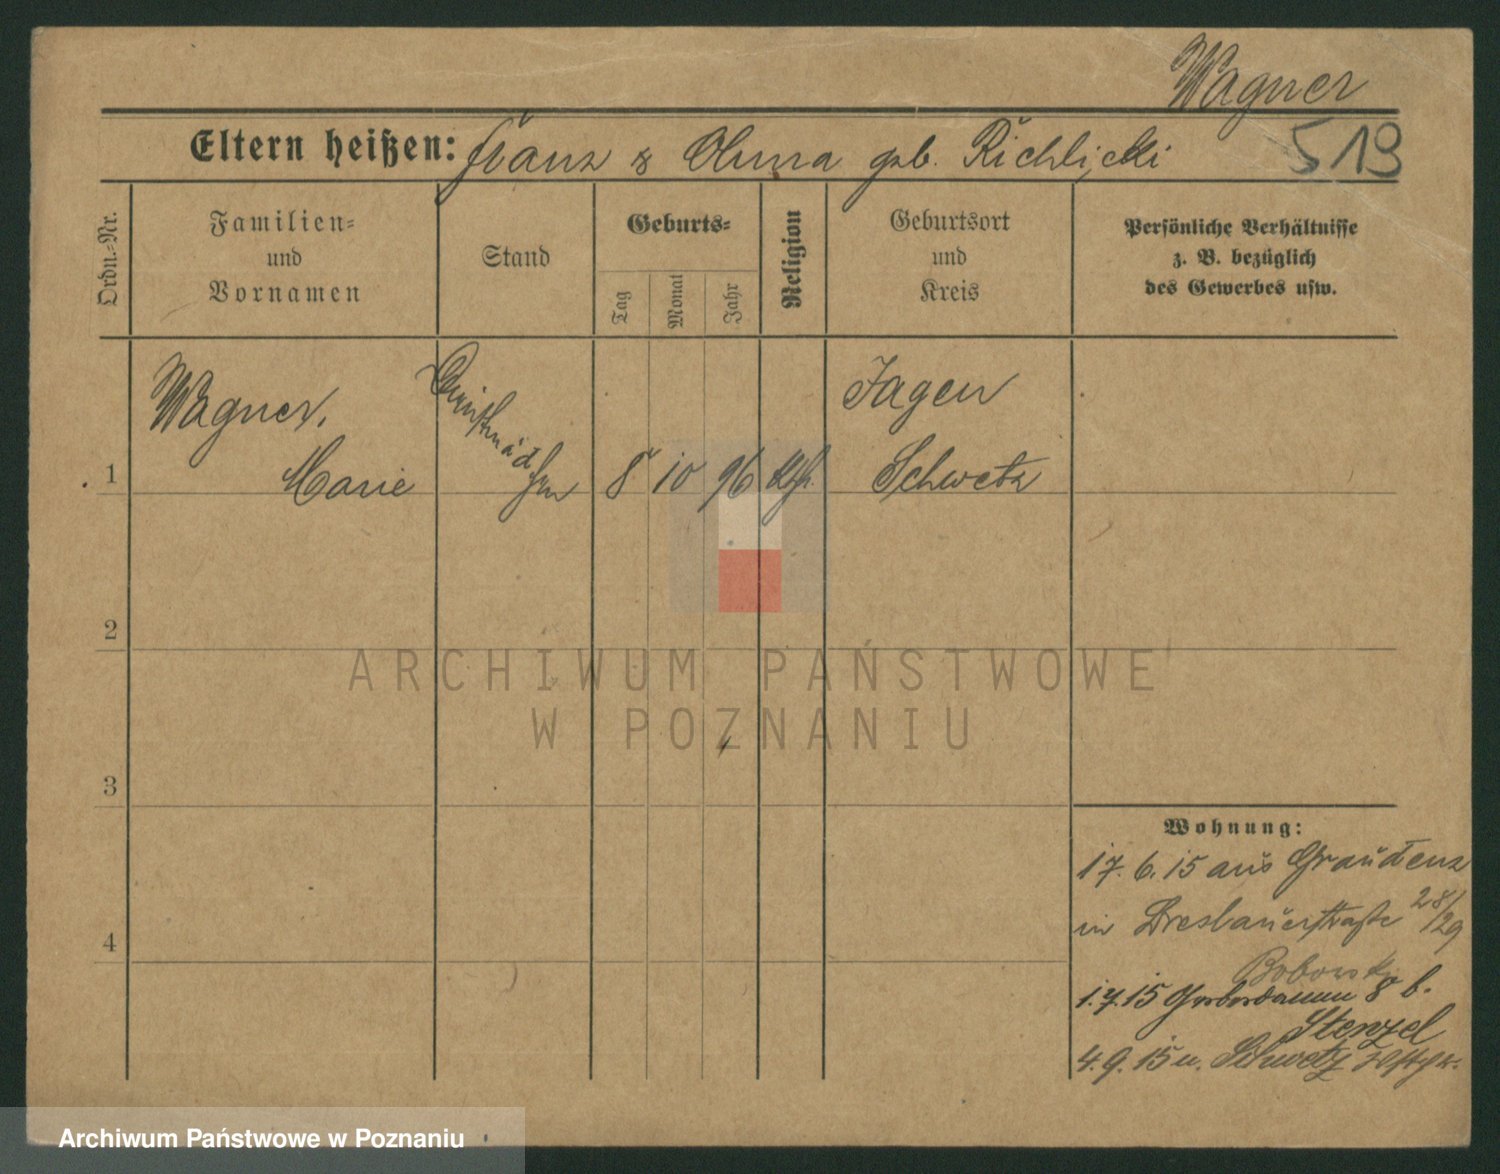 Wagner
Eltern heißen: Franz & Anna geb. Richlicki
519
Ordn.-Nr.
Familien- und Vornamen
Stand
Geburts-
Tag
Monat
Jahr
Religion
Geburtsort und Kreis
Persönliche Verhältnisse
z. B. bezüglich
des Gewerbes usw.
1
Wagner,
Marie
Dienstmäd
chen
8
10
96
kth.
Jagen
Schwetz
2
3
4
ARCHIWUM PAŃSTWOWE
W POZNANIU
Wohnung:
17. 6. 15 aus Graudenz
in Breslauerstraße 28/29
Boborski
1. 7. 15 Gerberdamm 8 b.
Stenzel
4. 9. 15 n. Schwetz
Archiwum Państwowe w Poznaniu